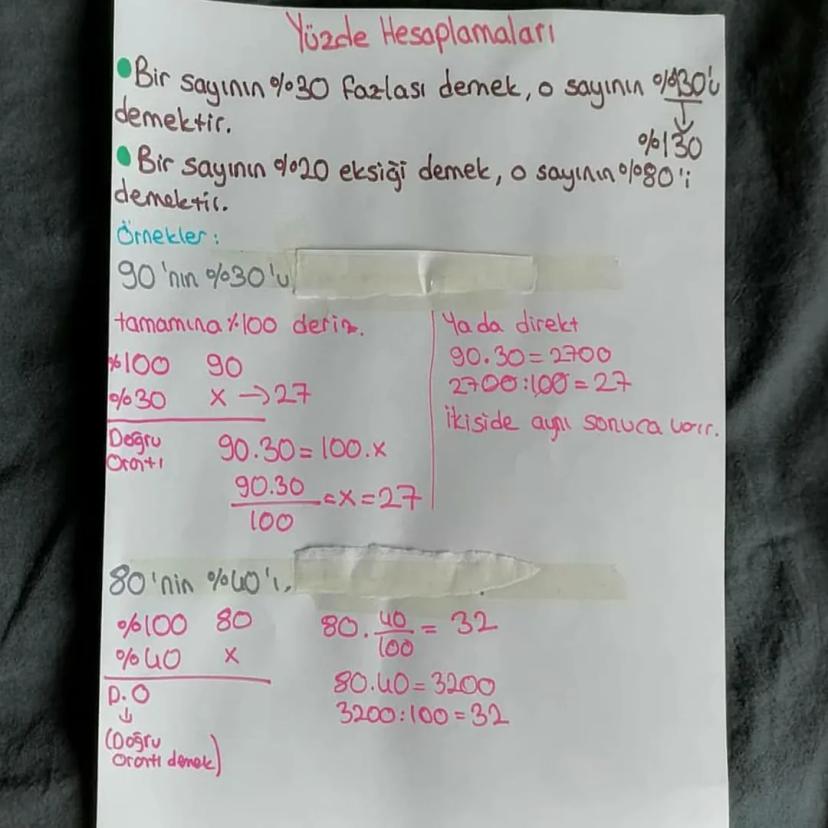 Yüzde Hesaplamaları
Bir sayının %30 fazlası demek, o sayının %130'u
demektir.
%130
Bir sayının %20 eksiği demek, o sayının %80'i
demektir.
Örnekler:
90'nın %30'u
tamamına %100 deriz.
%100 90
%30 x → 27
Doğru
Orantı
90.30=100.x
90.30
100
=x=27
Ya da direkt
90.30=2700
2700:100=27
İkiside aynı sonuca varır.
80'nin %40'ı.
%100 80
%40 x
D.O
(Doğru
Orantı demek)
80. 40/100 = 32
80.40=3200
3200:100=32